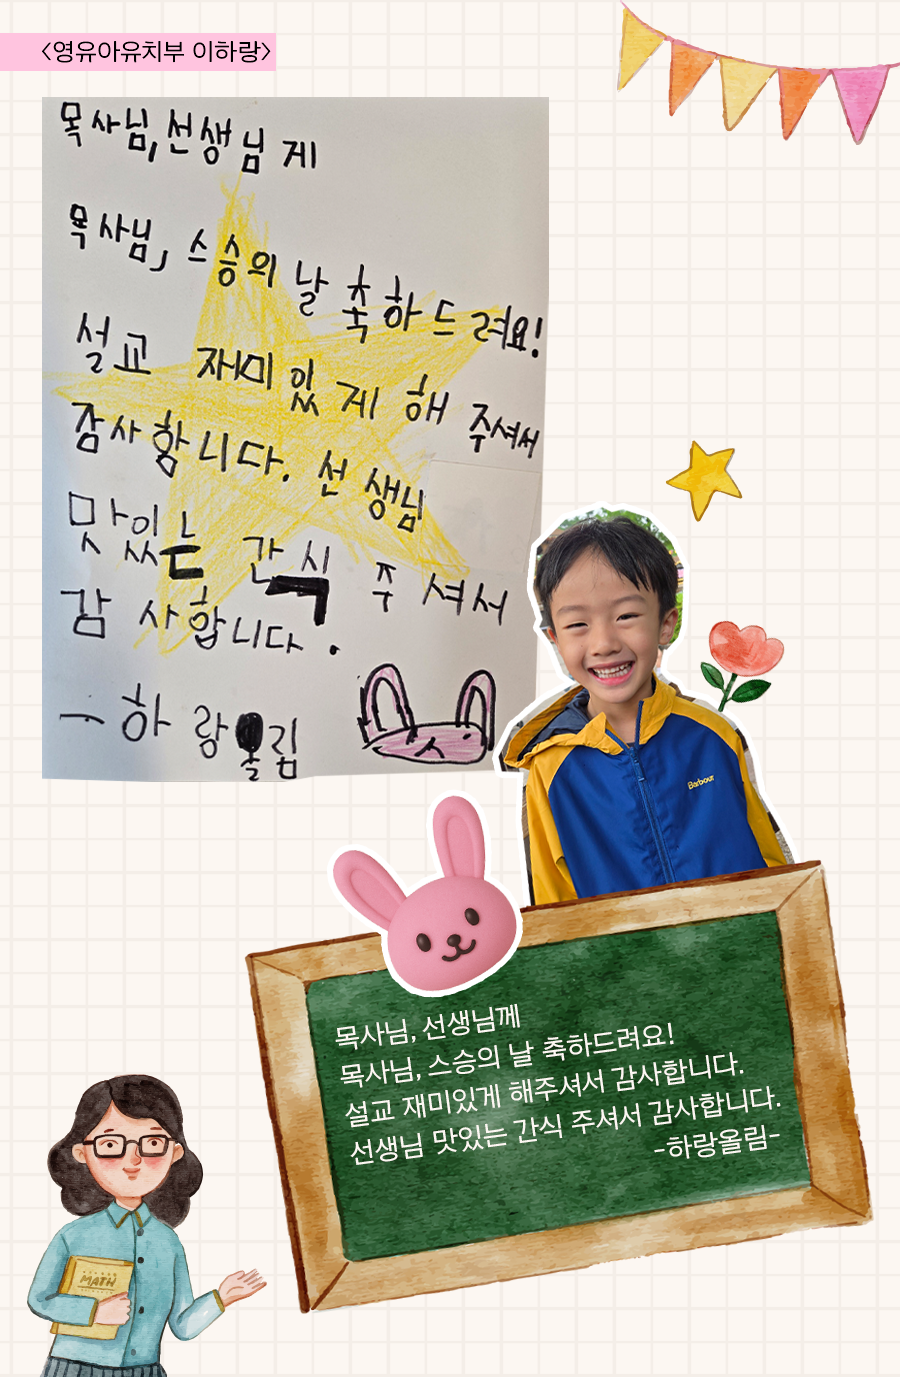 <영유아유치부 이하랑>
목사님,선생님 게
목사님, 스승의 날 축하드려요!
설교 재미있게 해 주셔서
감사합니다. 선생님
맛있는 간식 주셔서
감사합니다.
-하랑올림
Barbour
목사님, 선생님께
목사님, 스승의 날 축하드려요!
설교 재미있게 해주셔서 감사합니다.
선생님 맛있는 간식 주셔서 감사합니다.
-하랑올림-
MATH